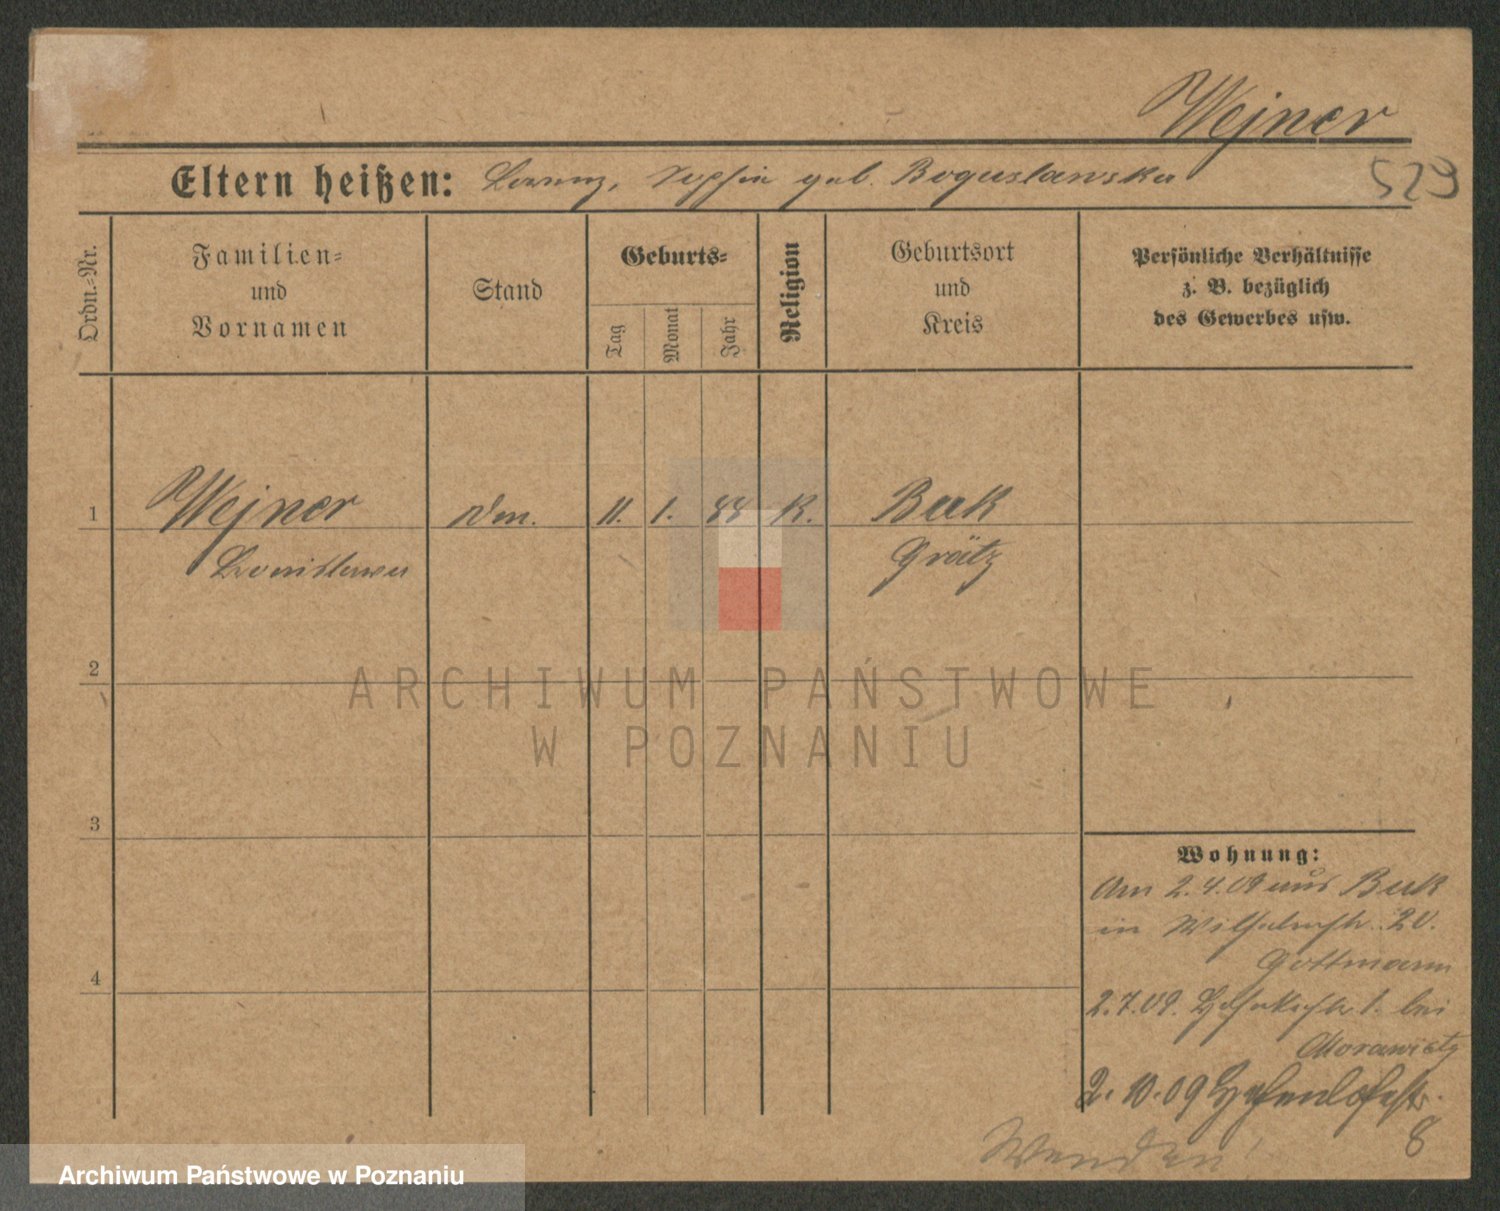 Wejner
529
Eltern heißen: Lorenz, Sophie geb. Boguslawska
Ordn.-Nr.
Familien-
und
Vornamen
Stand
Geburts-
Tag
Monat
Jahr
Religion
Geburtsort
und
Kreis
Persönliche Verhältnisse
z. B. bezüglich
des Gewerbes usw.
1
Wejner
11. 1. 88 K.
Buk
Grätz
2
ARCHIWUM PAŃSTWOWE
W POZNANIU
3
Wohnung:
Am 2.4.09 aus Buk
in Wilhelmstr. 20.
Gottmann
4
2.7.09. 1. bei
Morawietz
2.10.09
8
Wenden!
Archiwum Państwowe w Poznaniu